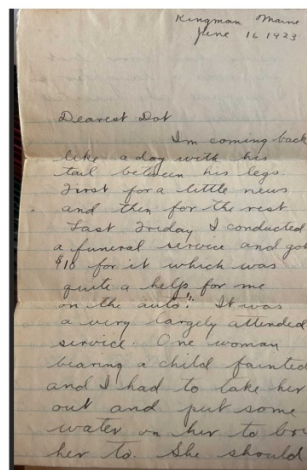 Kingman Maine
June 16 1923
Dearest Dot
Im coming back
like a dog with his
tail between his legs
First for a little news
and then for the rest.
Last Friday I conducted
a funeral service and got
$10 for it which was
quite a help for me
on the auto." It was
a very largely attended
service. One woman
bearing a child fainted
and I had to take her
out and put some
water on her to
her to. She should